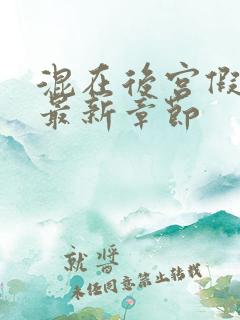 混在後宮假
最新章節
就將
未经同意禁止转载